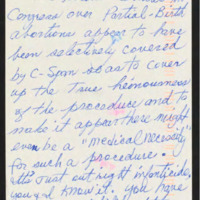 Congress over Partial-Birth
abortions appear to have
been selectively covered
by C-Span so as to cover
up the true heinousness
of the procedure and to
make it appear there might
even be a "medical necessity"
for such a procedure.
It's just outright infanticide,
you know it. You have